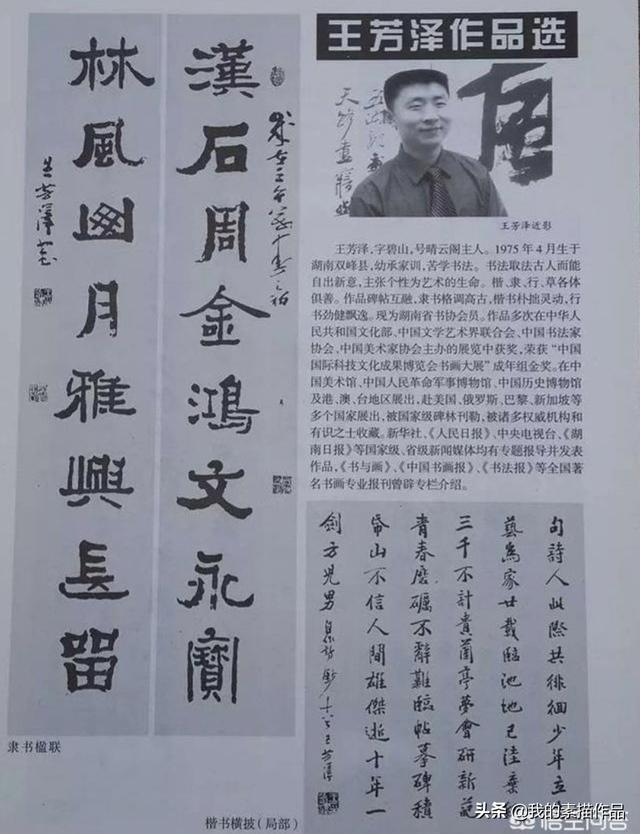 王芳泽作品选
漢石周金鴻文永寶
林風囪月雅興長留
王芳澤
王芳泽近影
王芳泽,字碧山,号晴云阁主人。1975年4月生于
湖南双峰县,幼承家训,苦学书法。书法取法古人而能
自出新意,主张个性为艺术的生命。楷、隶、行、草各体
俱善。作品碑帖互融,隶书格调高古,楷书朴拙灵动,行
书劲健飘逸。现为湖南省书协会员。作品多次在中华人
民共和国文化部、中国文学艺术界联合会、中国书法家
协会、中国美术家协会主办的展览中获奖,荣获“中国
国际科技文化成果博览会书画大展”成年组金奖。在中
国美术馆、中国人民革命军事博物馆、中国历史博物馆
及港、澳、台地区展出,赴美国、俄罗斯、巴黎、新加坡等
多个国家展出,被国家级碑林刊勒,被诸多权威机构和
有识之士收藏。新华社、《人民日报》、中央电视台、《湖
南日报》等国家级、省级新闻媒体均有专题报导并发表
作品,《书与画》、《中国书画报》、《书法报》等全国著
名书画专业报刊曾辟专栏介绍。
句詩人此際共徘徊少年立
藝爲家廿載臨池地已洼棄
三千不計貴蘭亭夢會研新范
青春磨礪不辭難臨帖摹碑積
帋山不信人間雄傑逝十年一
劍方見男
王芳澤
隶书楹联
楷书横披(局部)
头条 @我的素描作品
悟空问答